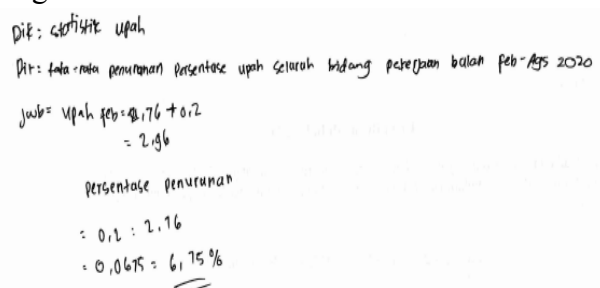 Dik: statistik upah
Dit: rata-rata penurunan persentase upah seluruh bidang pekerjaan bulan Feb-Ags 2020
Jwb= Upah feb = 2,76 + 0,2
= 2,96
persentase penurunan
= 0,2 : 2,96
= 0,0675 = 6,75%